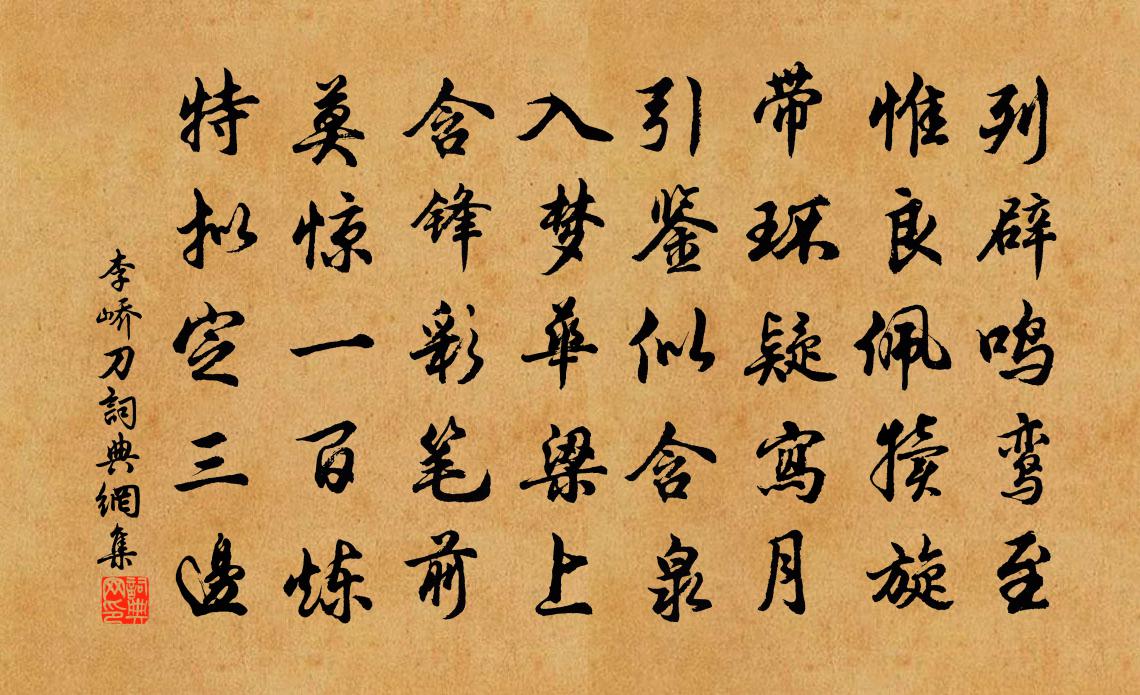 列辟鸣鸾至
惟良佩犊旋
带环疑写月
引鉴似含泉
入梦华梁上
含锋彩笔前
莫惊一百炼
特拟定三邊
李嶠刀詞典網集
詞典网印